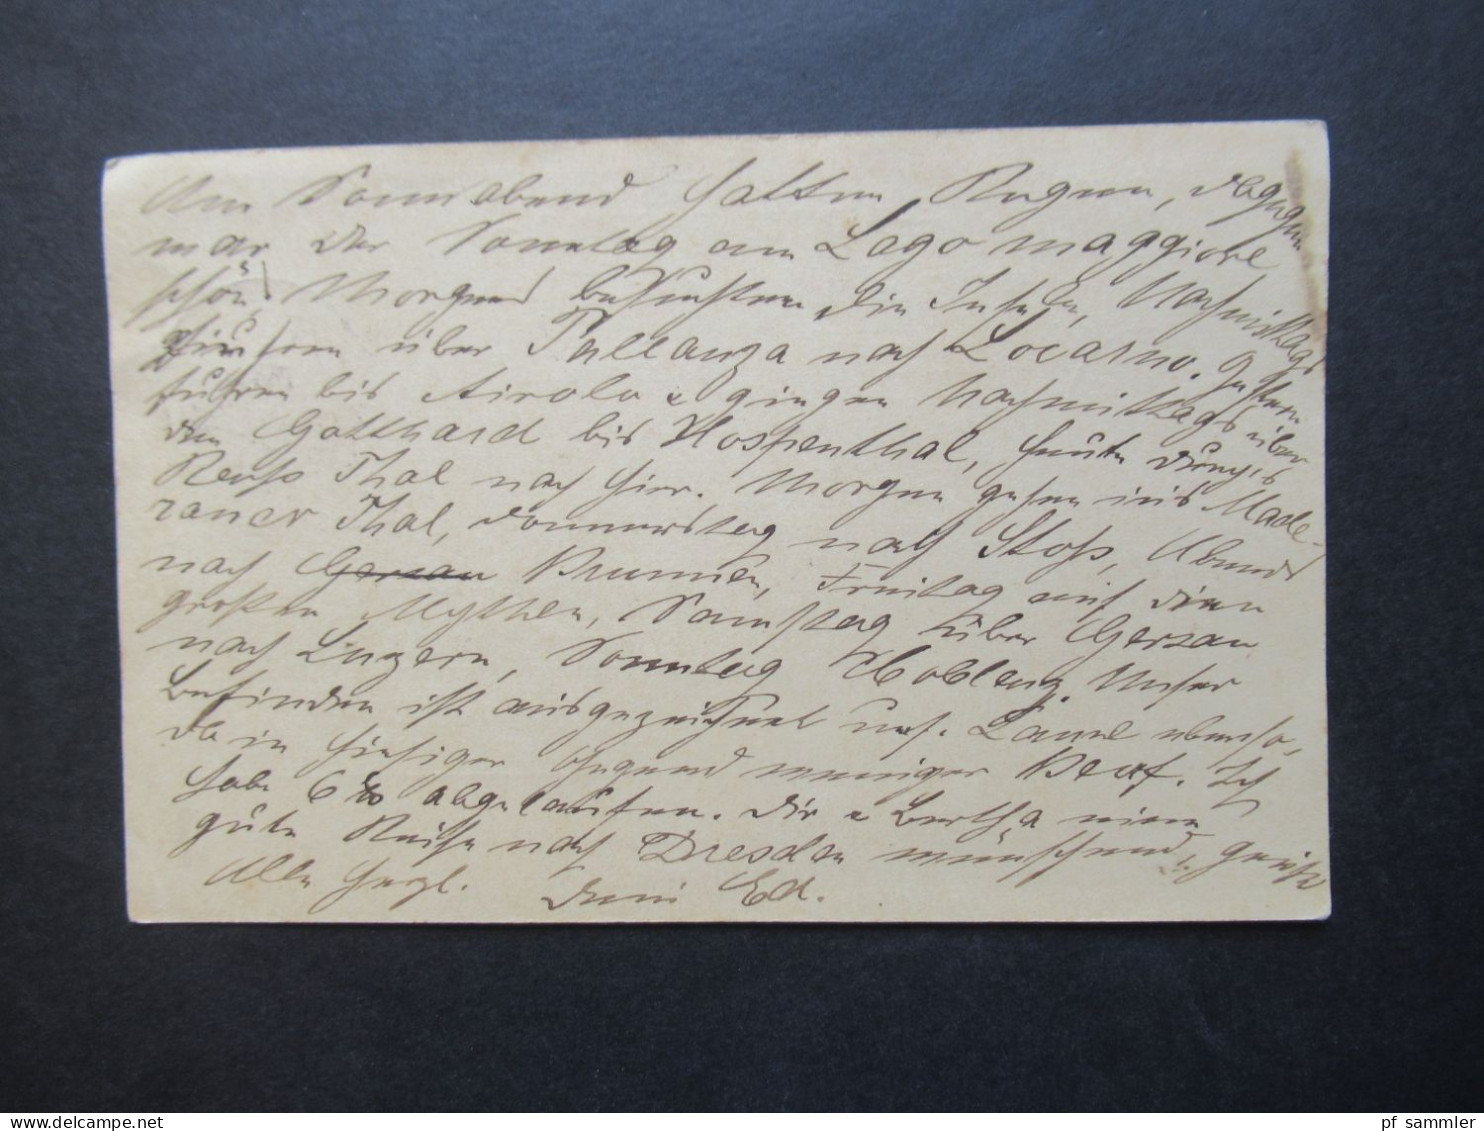 Am Sonnabend hatten Regen, dagegen
war der Sonntag am Lago maggiore
schön! Morgens besuchten die Inseln, Nachmittags
fuhren über Pallanza nach Locarno. Gestern
fuhren bis Airolo & gingen Nachmittags über
den Gotthard bis Hospenthal, heute durchs
Reuß Thal nach hier. Morgen gehen ins Made-
raner Thal, Donnerstag nach Stoß, Abends
nach Gersau Brunnen, Freitag auf den
großen Mythen, Samstag über Gersau
nach Luzern, Sonntag Koblenz. Unser
Befinden ist ausgezeichnet Laune ebenso,
da in hiesiger Gegend weniger Ich
habe 6 abgelaufen. Dir & Bertha eine
gute Reise nach Dresden wünschend, grüßt
Alle herzl. Dein Ed.
pf sammler
delcampe.net